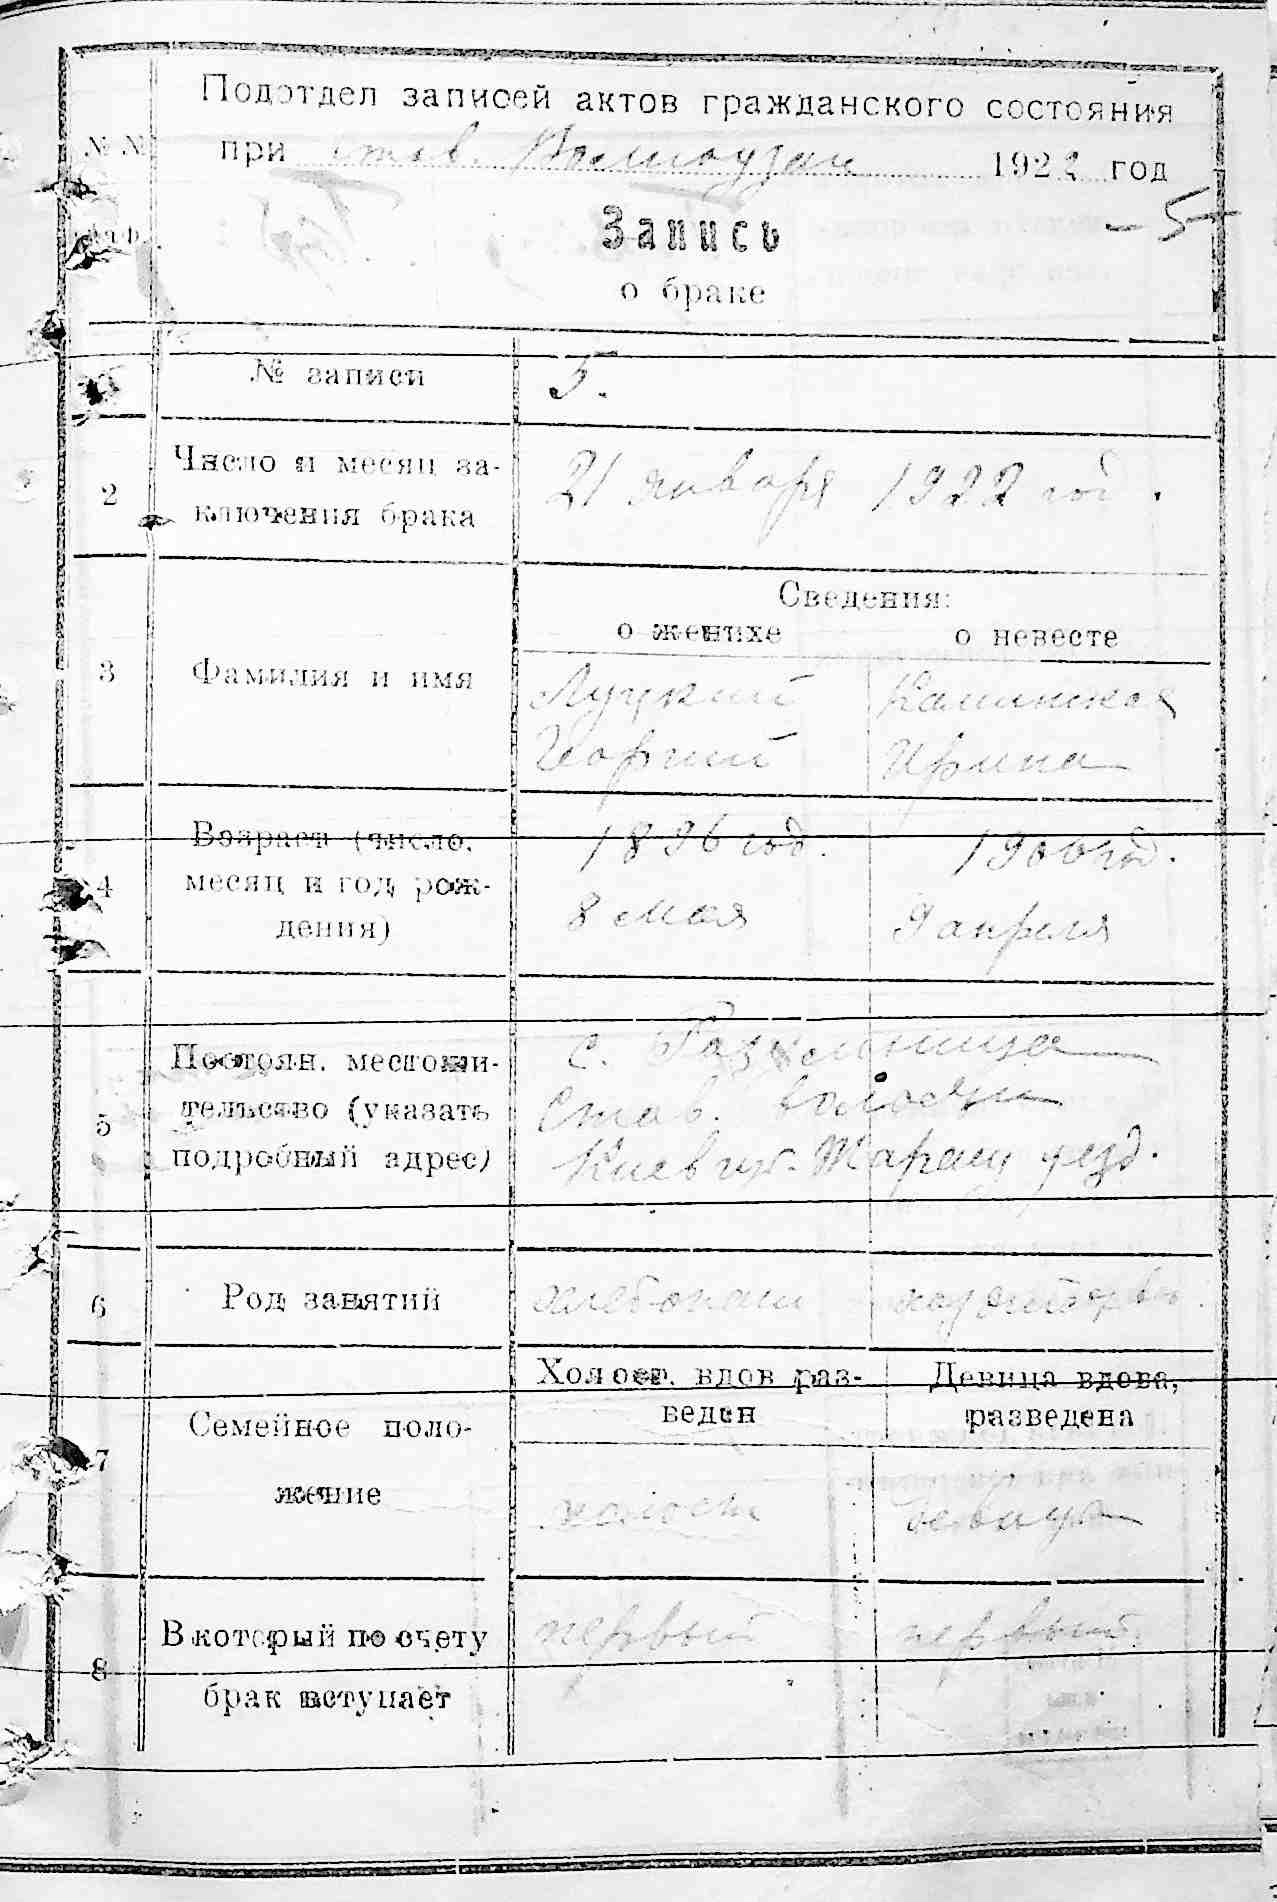 Подотдел записей актов гражданского состояния
№ №
при став. 1922 год
Граф.
– 5
Запись
о браке
№ записи 5.
2 Число и месяц за-
ключения брака
21 января 1922 год.
Сведения:
о женихе о невесте
3 Фамилия и имя
Луцкий Каминская
Георгий Ирина
4 Возраст (число,
месяц и год рож-
дения)
1896 год. 1900 год.
8 мая 9 апреля
5 Постоян. местожи-
тельство (указать
подробный адрес)
с.
Став. волости
Киев губ. уезд.
6 Род занятий хлебопаш
7 Семейное поло-
жение
Холост. вдов раз-
веден
Девица вдова,
разведена
холост девица
8 В который по счету
брак вступает
первый первый